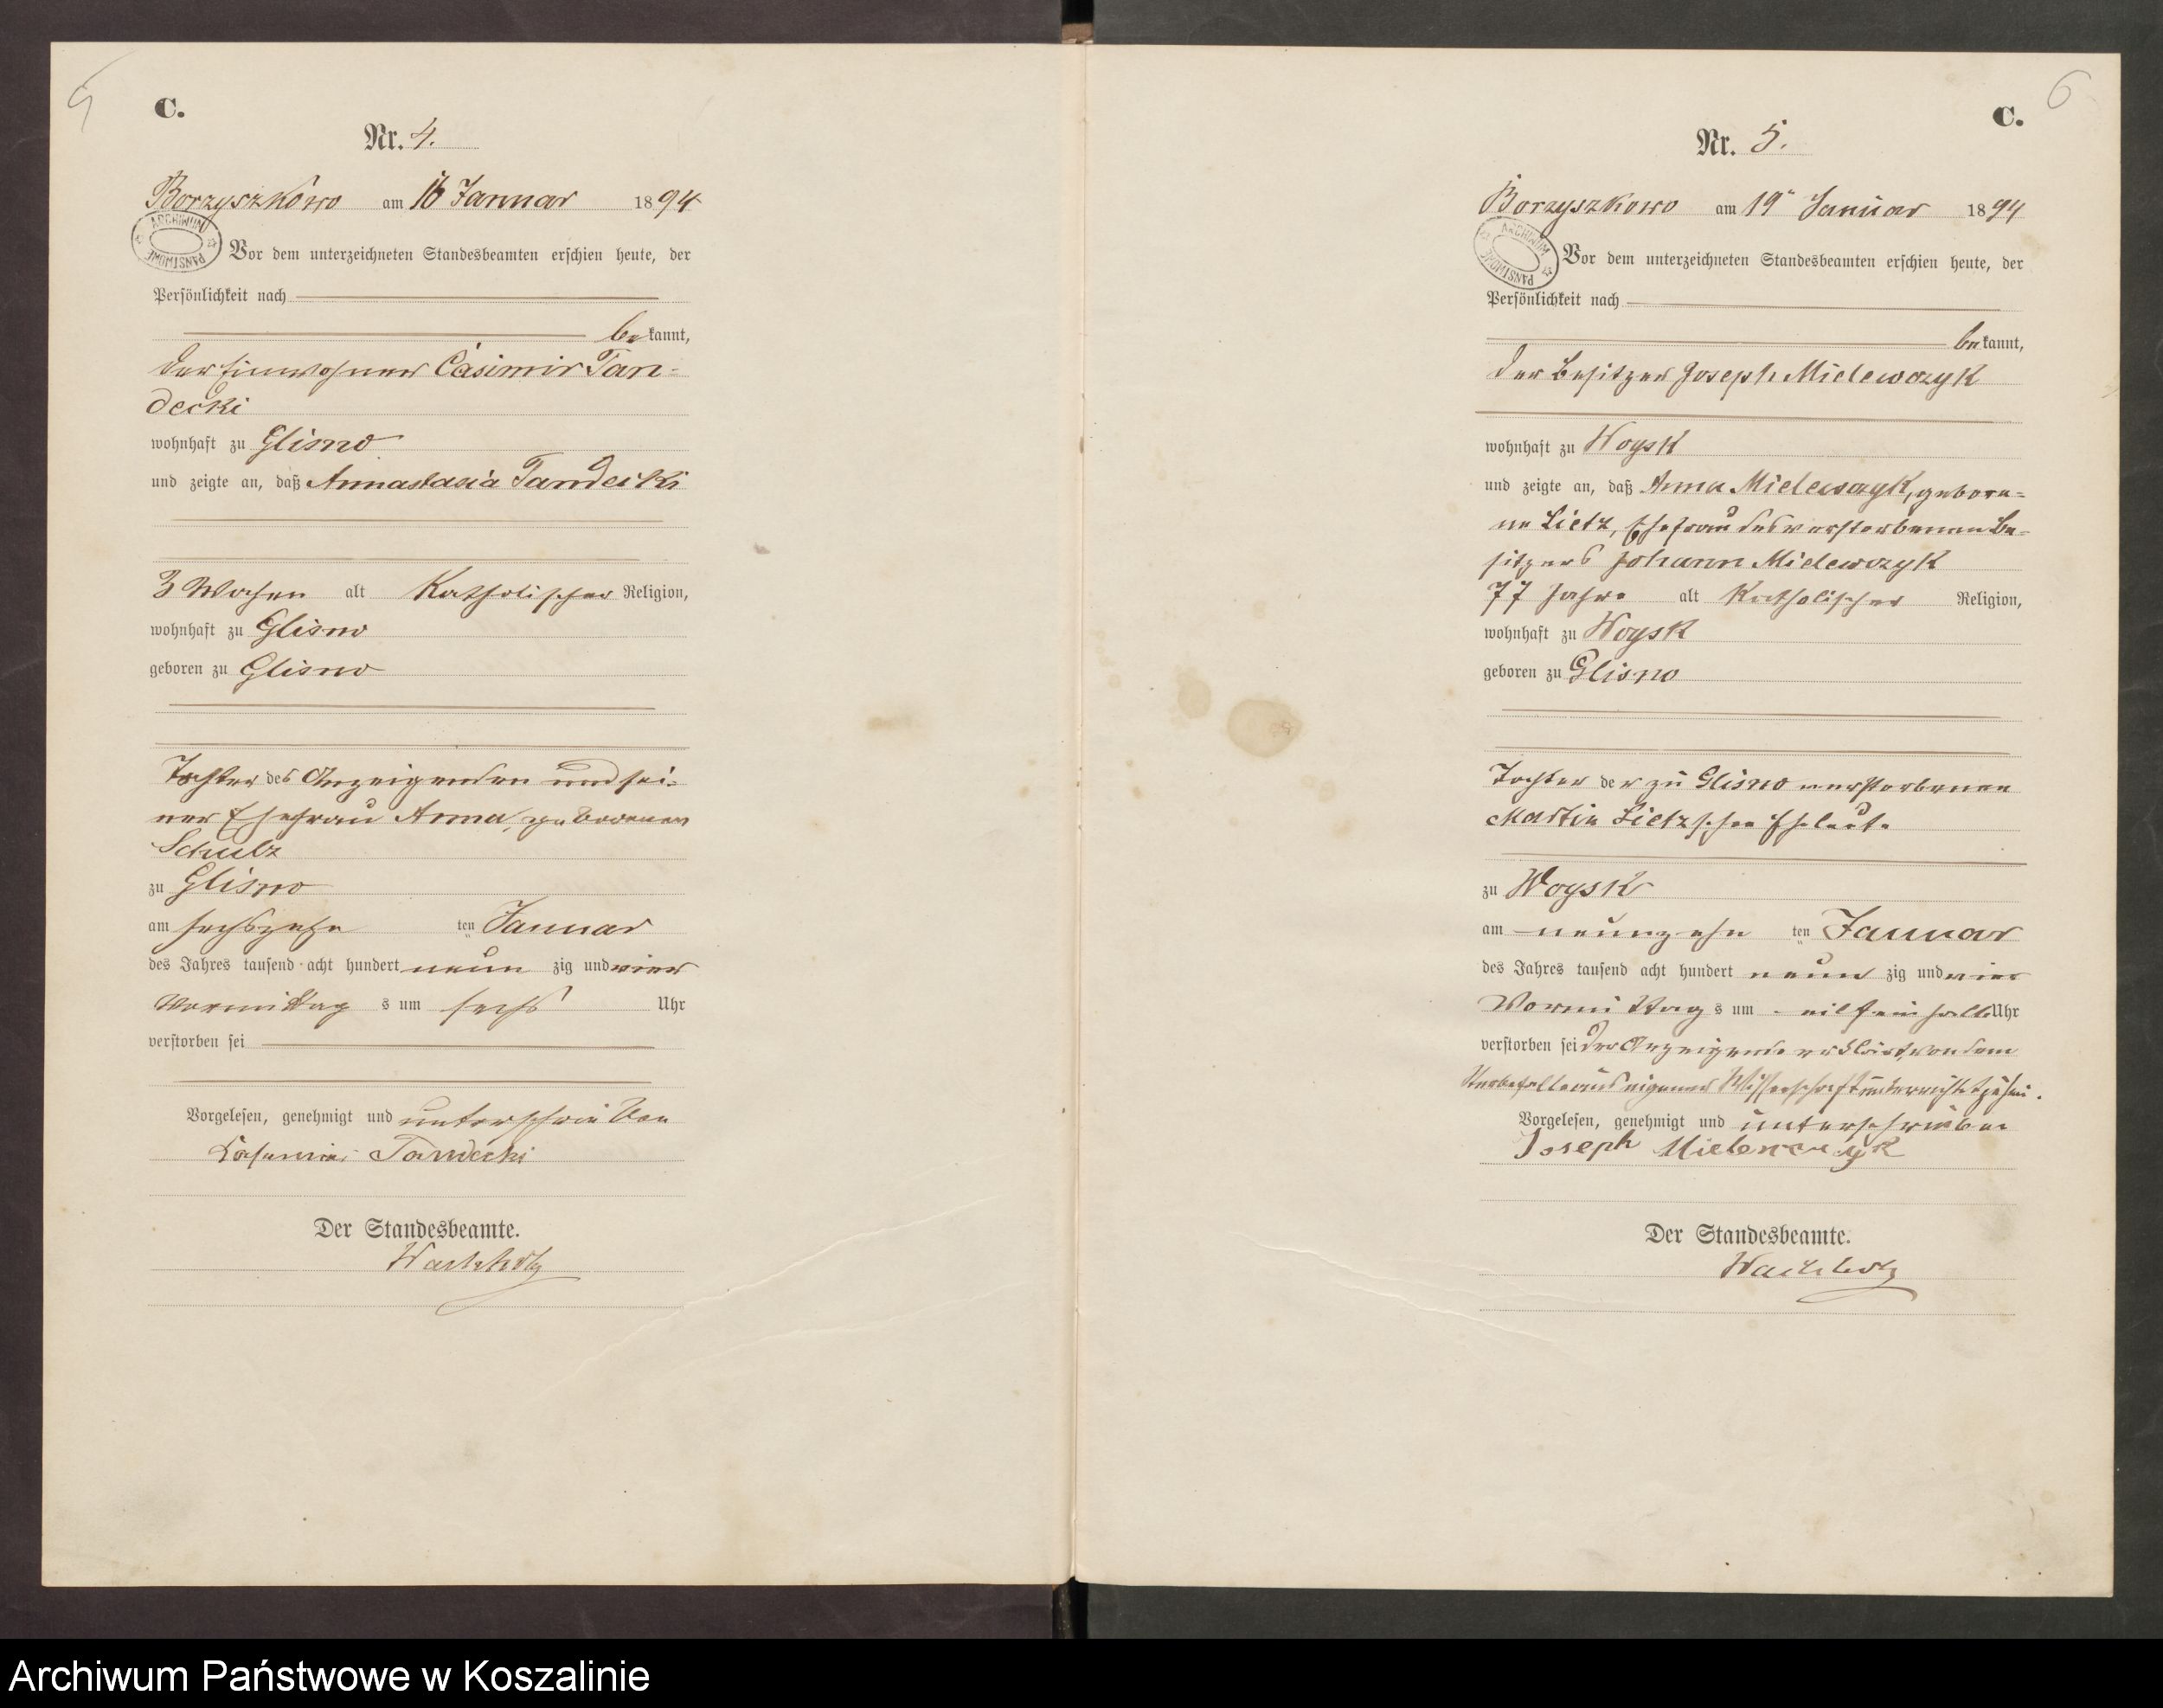 5
C.
Nr. 4.
Borzyszkowo am 16 Januar 1894
ARCHIWUM PAŃSTWOWE
Vor dem unterzeichneten Standesbeamten erschien heute, der
Persönlichkeit nach
bekannt,
der Einwohner Casimir Tan-
decki
wohnhaft zu Glisno
und zeigte an, daß Annastasia Tandecki
3 Wochen alt Katholischer Religion,
wohnhaft zu Glisno
geboren zu Glisno
Tochter des Anzeigenden und sei-
ner Ehefrau Anna, geborenen
Schulz
zu Glisno
am sechszehn ten Januar
des Jahres tausend acht hundert neun zig und vier
Vormittag s um sechs Uhr
verstorben sei
Vorgelesen, genehmigt und unterschrieben
Tandecki
Der Standesbeamte.
Wachholz
6
C.
Nr. 5.
Borzyszkowo am 19ten Januar 1894
ARCHIWUM PAŃSTWOWE
Vor dem unterzeichneten Standesbeamten erschien heute, der
Persönlichkeit nach
bekannt,
der Besitzer Joseph Mielewczyk
wohnhaft zu Woysk
und zeigte an, daß Anna Mielewczyk, gebore-
ne Lietz, Ehefrau des verstorbenen Be-
sitzers Johann Mielewczyk
77 Jahre alt Katholischer Religion,
wohnhaft zu Woysk
geboren zu Glisno
Tochter der zu Glisno verstorbenen
Martin Lietzschen Eheleute
zu Woysk
am neunzehn ten Januar
des Jahres tausend acht hundert neun zig und vier
Vormittag s um eilfeinhalb Uhr
verstorben sei der Anzeigende erklärt, von dem
Sterbefalle aus eigener Wissenschaft unterrichtet zu sein.
Vorgelesen, genehmigt und unterschrieben
Joseph Mielewczyk
Der Standesbeamte.
Wachholz
Archiwum Państwowe w Koszalinie